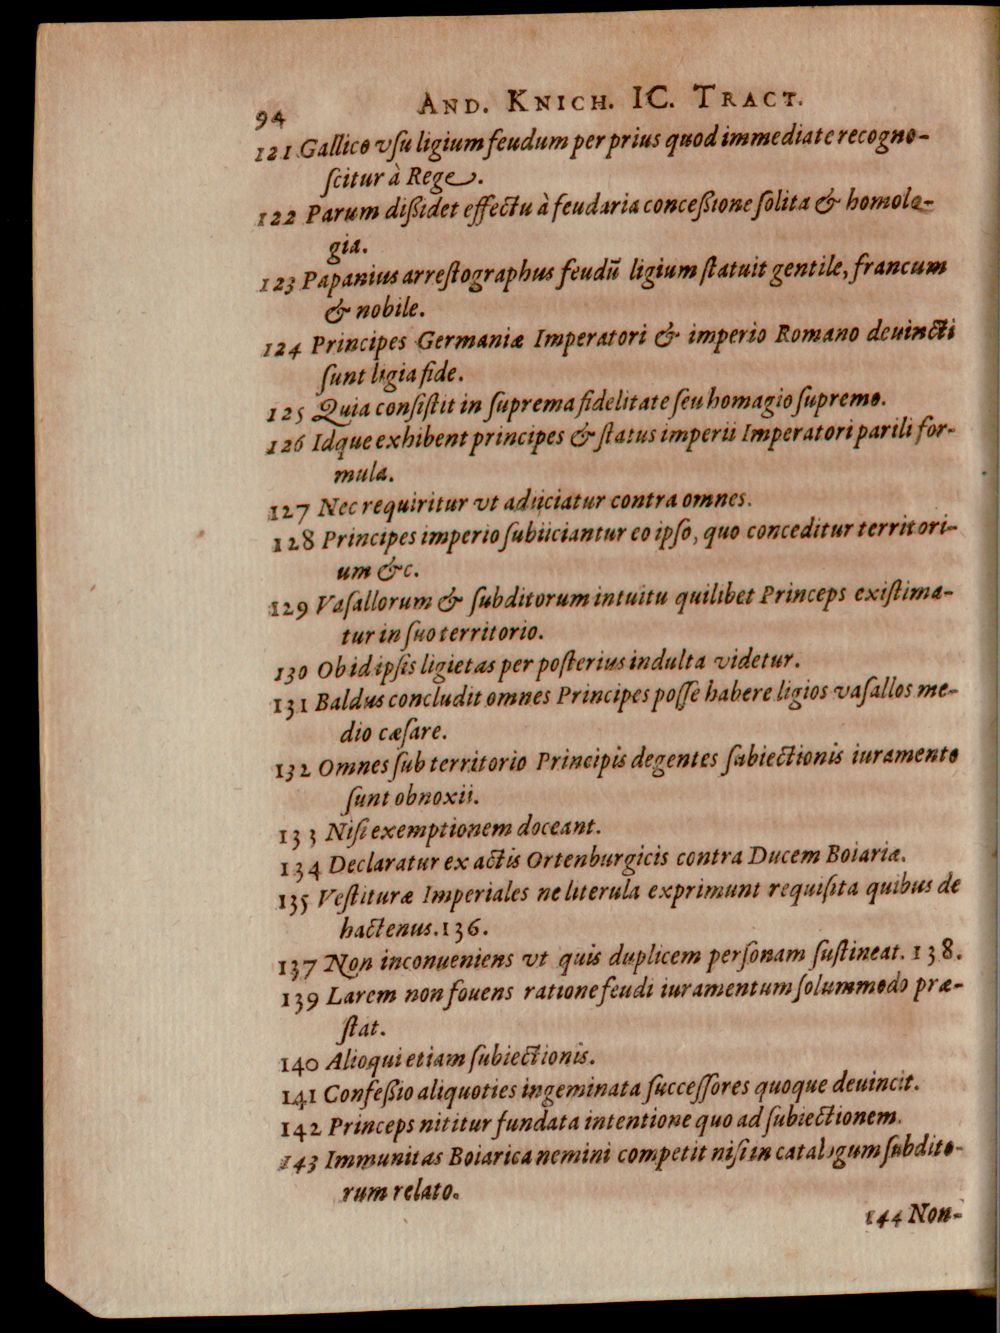 94 AND. KNICH. IC. TRACT.
121 Gallico vſu ligium feudum per prius quod immediate recogno-
ſcitur à Rege.
122 Parum dißidet effectu à feudaria conceßione ſolita & homolo-
gia.
123 Papanius arreſtographus feudū ligium ſtatuit gentile, francum
& nobile.
124 Principes Germaniæ Imperatori & imperio Romano deuincti
ſunt ligia fide.
125 Quia conſiſtit in ſuprema fidelitate ſeu homagio ſupremo.
126 Idque exhibent principes & ſtatus imperii Imperatori parili for-
mula.
127 Nec requiritur vt adiiciatur contra omnes.
128 Principes imperio ſubiiciantur eo ipſo, quo conceditur territori-
um &c.
129 Vaſallorum & ſubditorum intuitu quilibet Princeps exiſtima-
tur in ſuo territorio.
130 Ob id ipſis ligietas per poſterius indulta videtur.
131 Baldus concludit omnes Principes poſſe habere ligios vaſallos me-
dio cæſare.
132 Omnes ſub territorio Principis degentes ſubiectionis iuramento
ſunt obnoxii.
133 Niſi exemptionem doceant.
134 Declaratur ex actis Ortenburgicis contra Ducem Boiariæ.
135 Veſtituræ Imperiales ne literula exprimunt requiſita quibus de
hactenus. 136.
137 Non inconueniens vt quis duplicem perſonam ſuſtineat. 138.
139 Larem non fouens ratione feudi iuramentum ſolummodo præ-
ſtat.
140 Alioqui etiam ſubiectionis.
141 Confeßio aliquoties ingeminata ſucceſſores quoque deuincit.
142 Princeps nititur fundata intentione quo ad ſubiectionem.
143 Immunitas Boiarica nemini competit niſi in catalogum ſubdito-
rum relato.
144 Non-